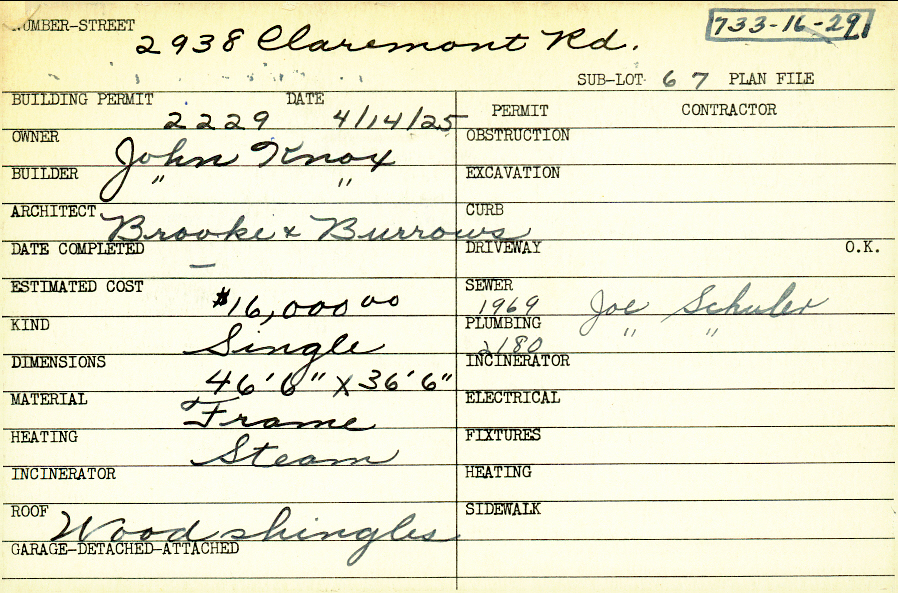 NUMBER-STREET
2938 Claremont Rd.
733-16-29
SUB-LOT 67 PLAN FILE
BUILDING PERMIT DATE
2229 4/14/25
OWNER
John Knox
BUILDER " "
ARCHITECT
Brooke & Burrows
DATE COMPLETED
—
ESTIMATED COST
$16,000 00
KIND
Single
DIMENSIONS
46'6" X 36'6"
MATERIAL
Frame
HEATING
Steam
INCINERATOR
ROOF
Wood shingles
GARAGE-DETACHED-ATTACHED
PERMIT CONTRACTOR
OBSTRUCTION
EXCAVATION
CURB
DRIVEWAY O.K.
SEWER
1969 Joe Schuler
PLUMBING
2180 " "
INCINERATOR
ELECTRICAL
FIXTURES
HEATING
SIDEWALK